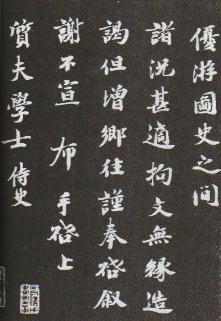 優游圖史之間
諸況甚適拘文無縁造
謁但增鄉往謹奉啓叙
謝不宣 布 手啓上
質夫學士 侍史